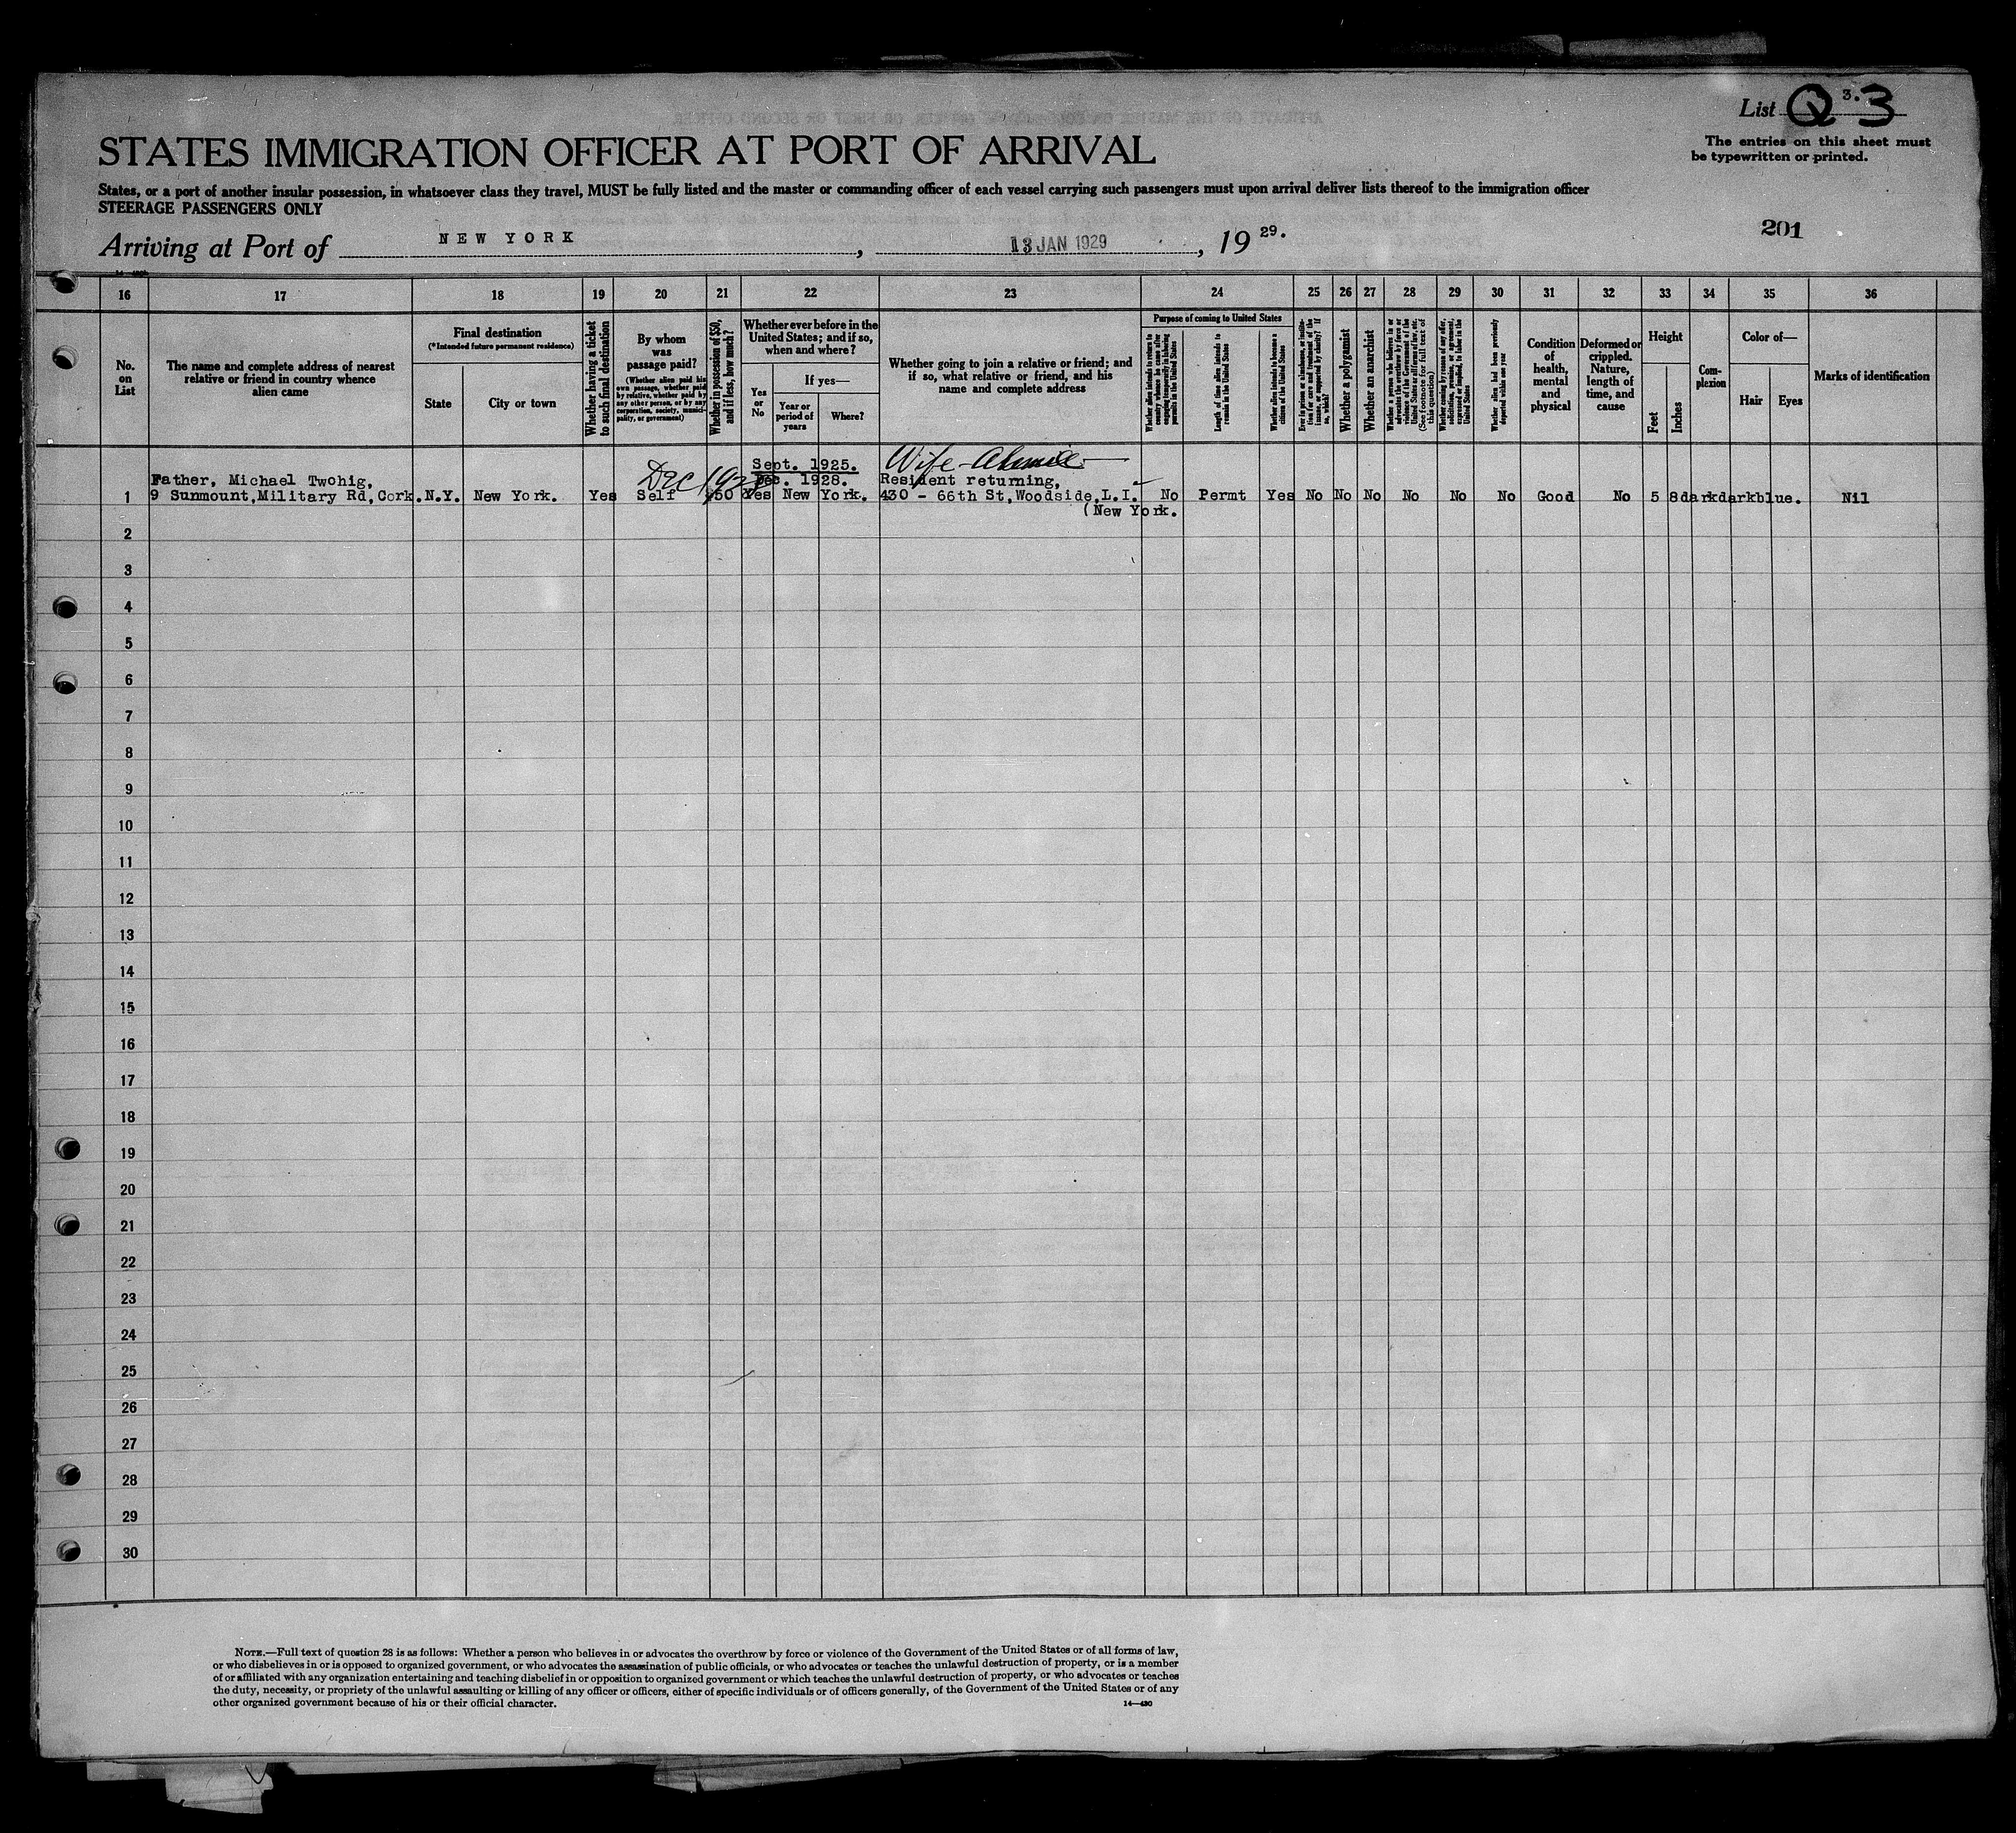 List Q 3. 3
The entries on this sheet must
be typewritten or printed.
STATES IMMIGRATION OFFICER AT PORT OF ARRIVAL
States, or a port of another insular possession, in whatsoever class they travel, MUST be fully listed and the master or commanding officer of each vessel carrying such passengers must upon arrival deliver lists thereof to the immigration officer
STEERAGE PASSENGERS ONLY
201
Arriving at Port of NEW YORK, 13 JAN 1929, 19 29.
16 17 18 19 20 21 22 23 24 25 26 27 28 29 30 31 32 33 34 35 36
No.
on
List
The name and complete address of nearest
relative or friend in country whence
alien came
Final destination
(*Intended future permanent residence)
State
City or town
Whether having a ticket
to such final destination
By whom
was
passage paid?
(Whether alien paid his
own passage, whether paid
by relative, whether paid by
any other person, or by any
corporation, society, munici-
pality, or government)
Whether in possession of $50,
and if less, how much?
Whether ever before in the
United States; and if so,
when and where?
Yes
or
No
If yes—
Year or
period of
years
Where?
Whether going to join a relative or friend; and
if so, what relative or friend, and his
name and complete address
Purpose of coming to United States
Whether alien intends to return to
country whence he came after
engaging temporarily in laboring
pursuits in the United States
Length of time alien intends to
remain in the United States
Whether alien intends to become a
citizen of the United States
Ever in prison or almshouse, or institu-
tion for care and treatment of the
insane, or supported by charity? If
so, which?
Whether a polygamist
Whether an anarchist
Whether a person who believes in or
advocates the overthrow by force or
violence of the Government of the
United States or all forms of law, etc.
(See footnote for full text of
this question)
Whether coming by reason of any offer,
solicitation, promise, or agreement,
expressed or implied, to labor in the
United States
Whether alien had been previously
deported within one year
Condition
of
health,
mental
and
physical
Deformed or
crippled.
Nature,
length of
time, and
cause
Height
Feet
Inches
Com-
plexion
Color of—
Hair
Eyes
Marks of identification
Dec 1928
Sept. 1925.
Dec. 1928.
Wife -
Father, Michael Twohig,
Resident returning,
1 9 Sunmount, Military Rd, Cork. N.Y. New York. Yes Self $50 Yes New York. 430 - 66th St, Woodside, L.I. No Permt Yes No No No No No No Good No 5 8 dark dark blue. Nil
(New York.
2
3
4
5
6
7
8
9
10
11
12
13
14
15
16
17
18
19
20
21
22
23
24
25
26
27
28
29
30
NOTE.—Full text of question 28 is as follows: Whether a person who believes in or advocates the overthrow by force or violence of the Government of the United States or of all forms of law,
or who disbelieves in or is opposed to organized government, or who advocates the assassination of public officials, or who advocates or teaches the unlawful destruction of property, or is a member
of or affiliated with any organization entertaining and teaching disbelief in or opposition to organized government or which teaches the unlawful destruction of property, or who advocates or teaches
the duty, necessity, or propriety of the unlawful assaulting or killing of any officer or officers, either of specific individuals or of officers generally, of the Government of the United States or of any
other organized government because of his or their official character.
14—430